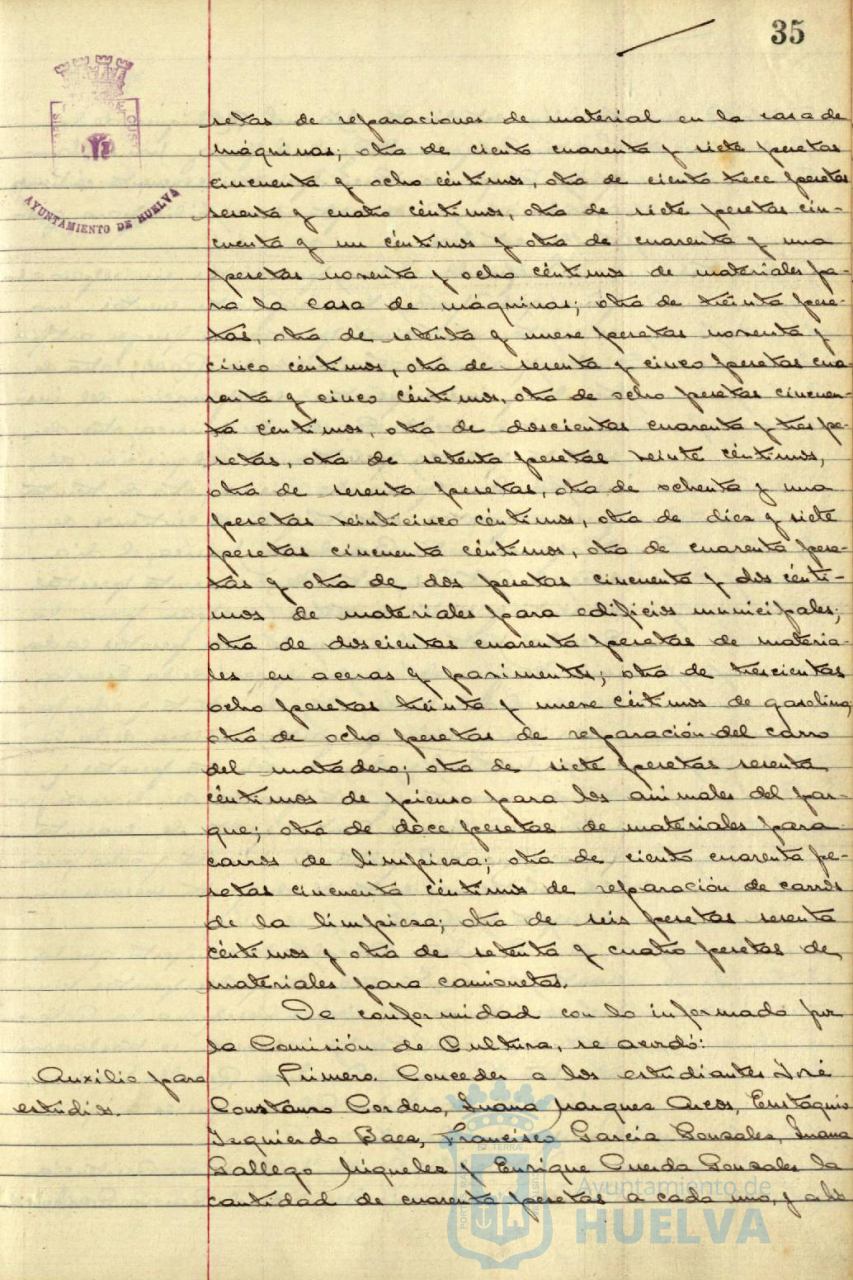 35
AYUNTAMIENTO DE HUELVA
setas de reparaciones de material en la casa de
máquinas; otra de ciento cuarenta y siete pesetas
cincuenta y ocho céntimos, otra de ciento trece pesetas
sesenta y cuatro céntimos, otra de siete pesetas cin-
cuenta y un céntimos y otra de cuarenta y una
pesetas noventa y ocho céntimos de materiales pa-
ra la casa de máquinas; otra de treinta pese-
tas, otra de setenta y nueve pesetas noventa y
cinco céntimos, otra de sesenta y cinco pesetas cua-
renta y cinco céntimos, otra de ocho pesetas cincuen-
ta céntimos, otra de doscientas cuarenta y tres pe-
setas, otra de setenta pesetas veinte céntimos,
otra de sesenta pesetas, otra de ochenta y una
pesetas veinticinco céntimos, otra de diez y siete
pesetas cincuenta céntimos, otra de cuarenta pese-
tas y otra de dos pesetas cincuenta y dos cénti-
mos de materiales para edificios municipales;
otra de doscientas cuarenta pesetas de materia-
les en aceras y pavimentos; otra de trescientas
ocho pesetas treinta y nueve céntimos de gasolina,
otra de ocho pesetas de reparación del carro
del matadero; otra de siete pesetas sesenta
céntimos de pienso para los animales del par-
que; otra de doce pesetas de materiales para
carros de limpieza; otra de ciento cuarenta pe-
setas cincuenta céntimos de reparación de carros
de la limpieza; otra de seis pesetas sesenta
céntimos y otra de setenta y cuatro pesetas de
materiales para camionetas.
De conformidad con lo informado por
la Comisión de Cultura, se acordó:
Auxilio para
estudios.
Primero. Conceder a los estudiantes José
Constanzo Cordero, Juana Marquez Arcos, Eustaquio
Izquierdo Baez, Francisco García Gonzalez, Juana
Gallego Miguelez y Enrique Cuerda Gonzalez la
cantidad de cuarenta pesetas a cada uno, y a los
Ayuntamiento de
HUELVA